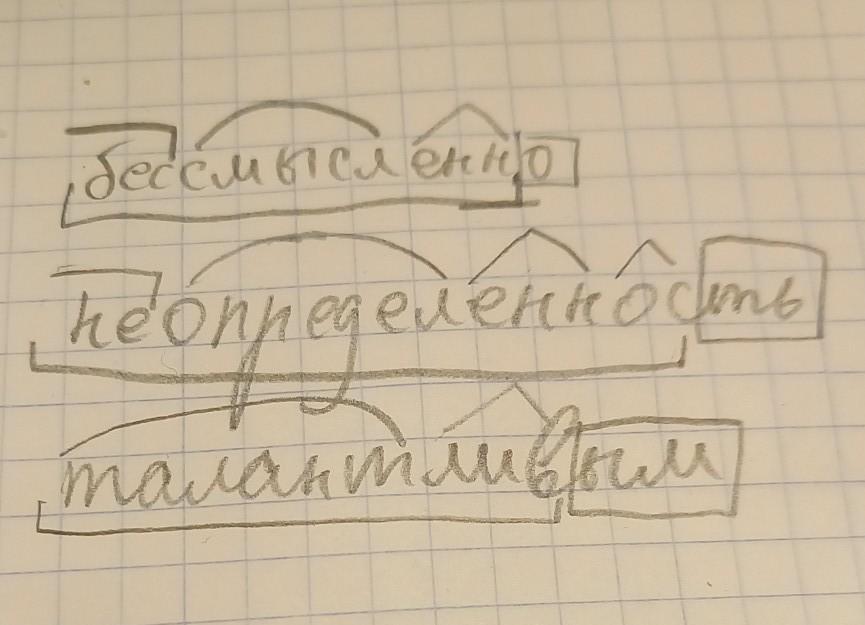 бессмысленно
неопределенность
талантливым